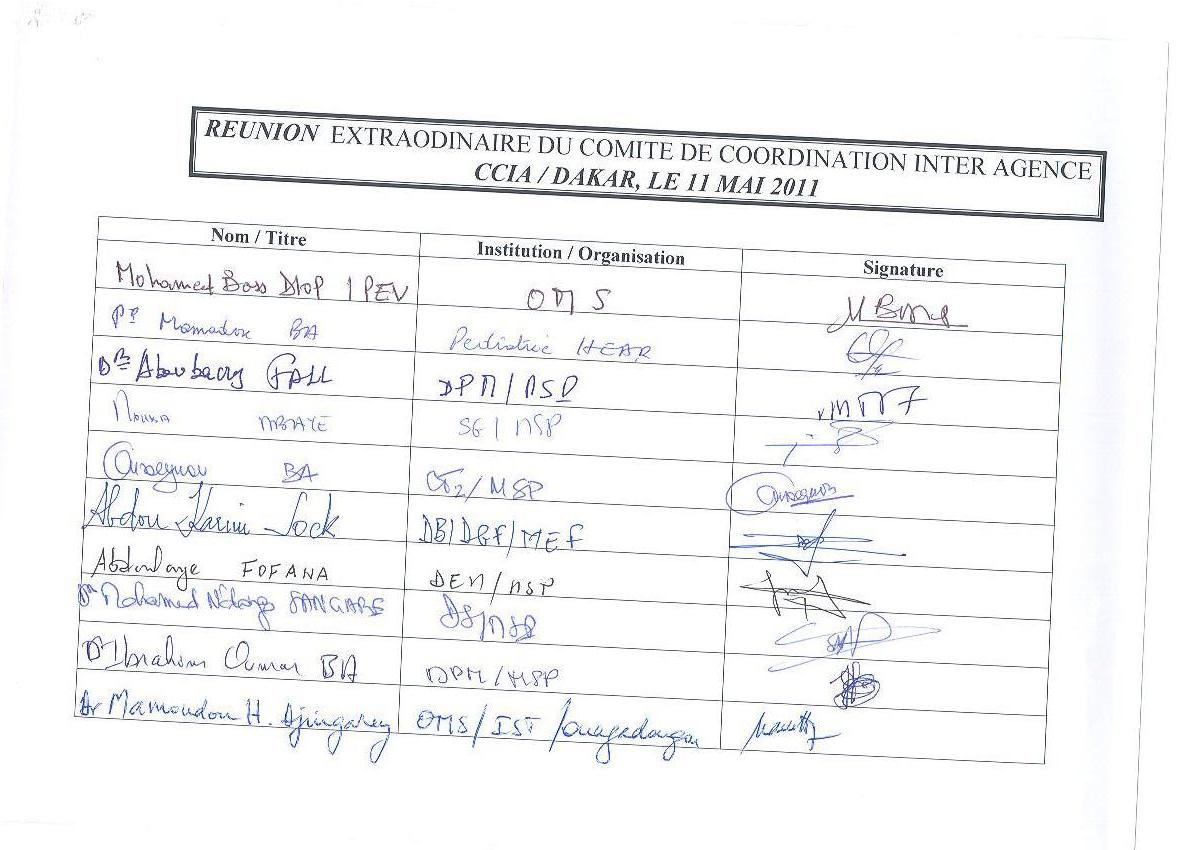 REUNION EXTRAODINAIRE DU COMITE DE COORDINATION INTER AGENCE
CCIA / DAKAR, LE 11 MAI 2011
Nom / Titre Institution / Organisation Signature
Mohamed Bass Diop / PEV OMS
Pr Mamadou BA Pediatrie HEAR
Dr Aboubacry FALL DPM / MSP
Moussa MBAYE SG / MSP
Ousseynou BA CT2 / MSP Ousseynou
Abdou Karim Lock DB/DGF/MEF
Abdoulaye FOFANA DEM / MSP
Dr Mohamed SANGARE DS/MSP
Dr Ibrahim Oumar BA DPM / MSP
Dr Mamoudou H. Djingarey OMS / IST / Ouagadougou